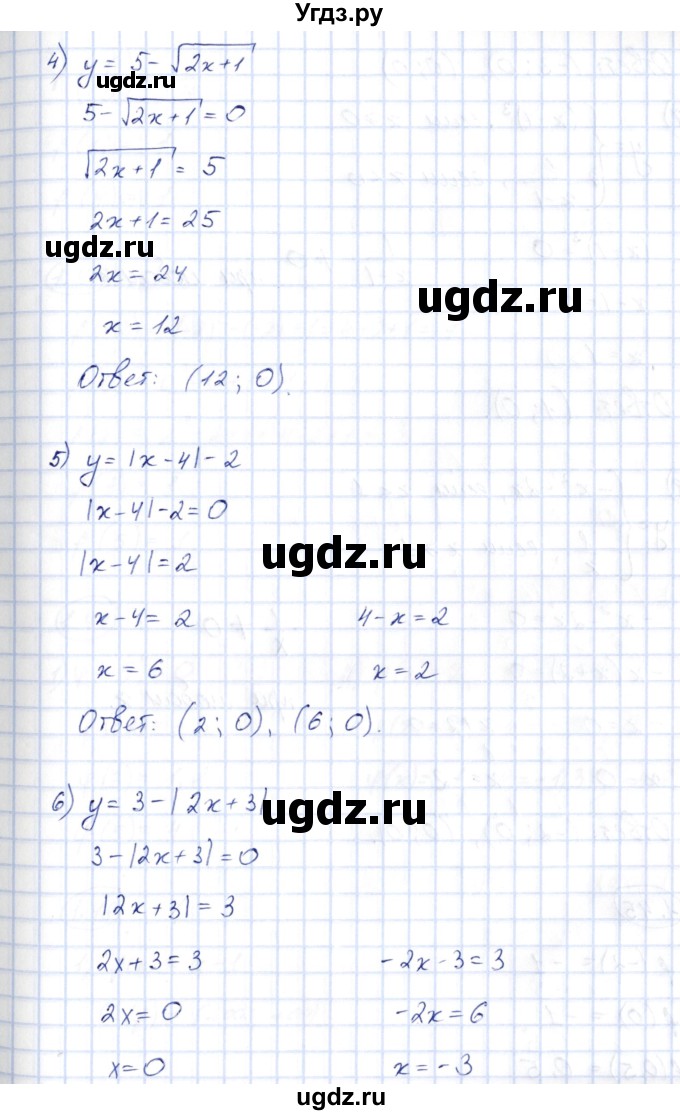 Угдз.ру
4) y = 5 - √(2x+1)
ugdz.ru
5 - √(2x+1) = 0
√(2x+1) = 5
2x+1 = 25
ugdz.ru
2x = 24
ugdz.ru
x = 12
Ответ: (12; 0).
5) y = |x-4| - 2
|x-4| - 2 = 0
ugdz.ru
|x-4| = 2
x-4 = 2 4-x = 2
x = 6 x = 2
Ответ: (2; 0), (6; 0).
6) y = 3 - |2x+3|
ugdz.ru
3 - |2x+3| = 0
|2x+3| = 3
2x+3 = 3 -2x-3 = 3
2x = 0 -2x = 6
x = 0 x = -3
ugdz.ru